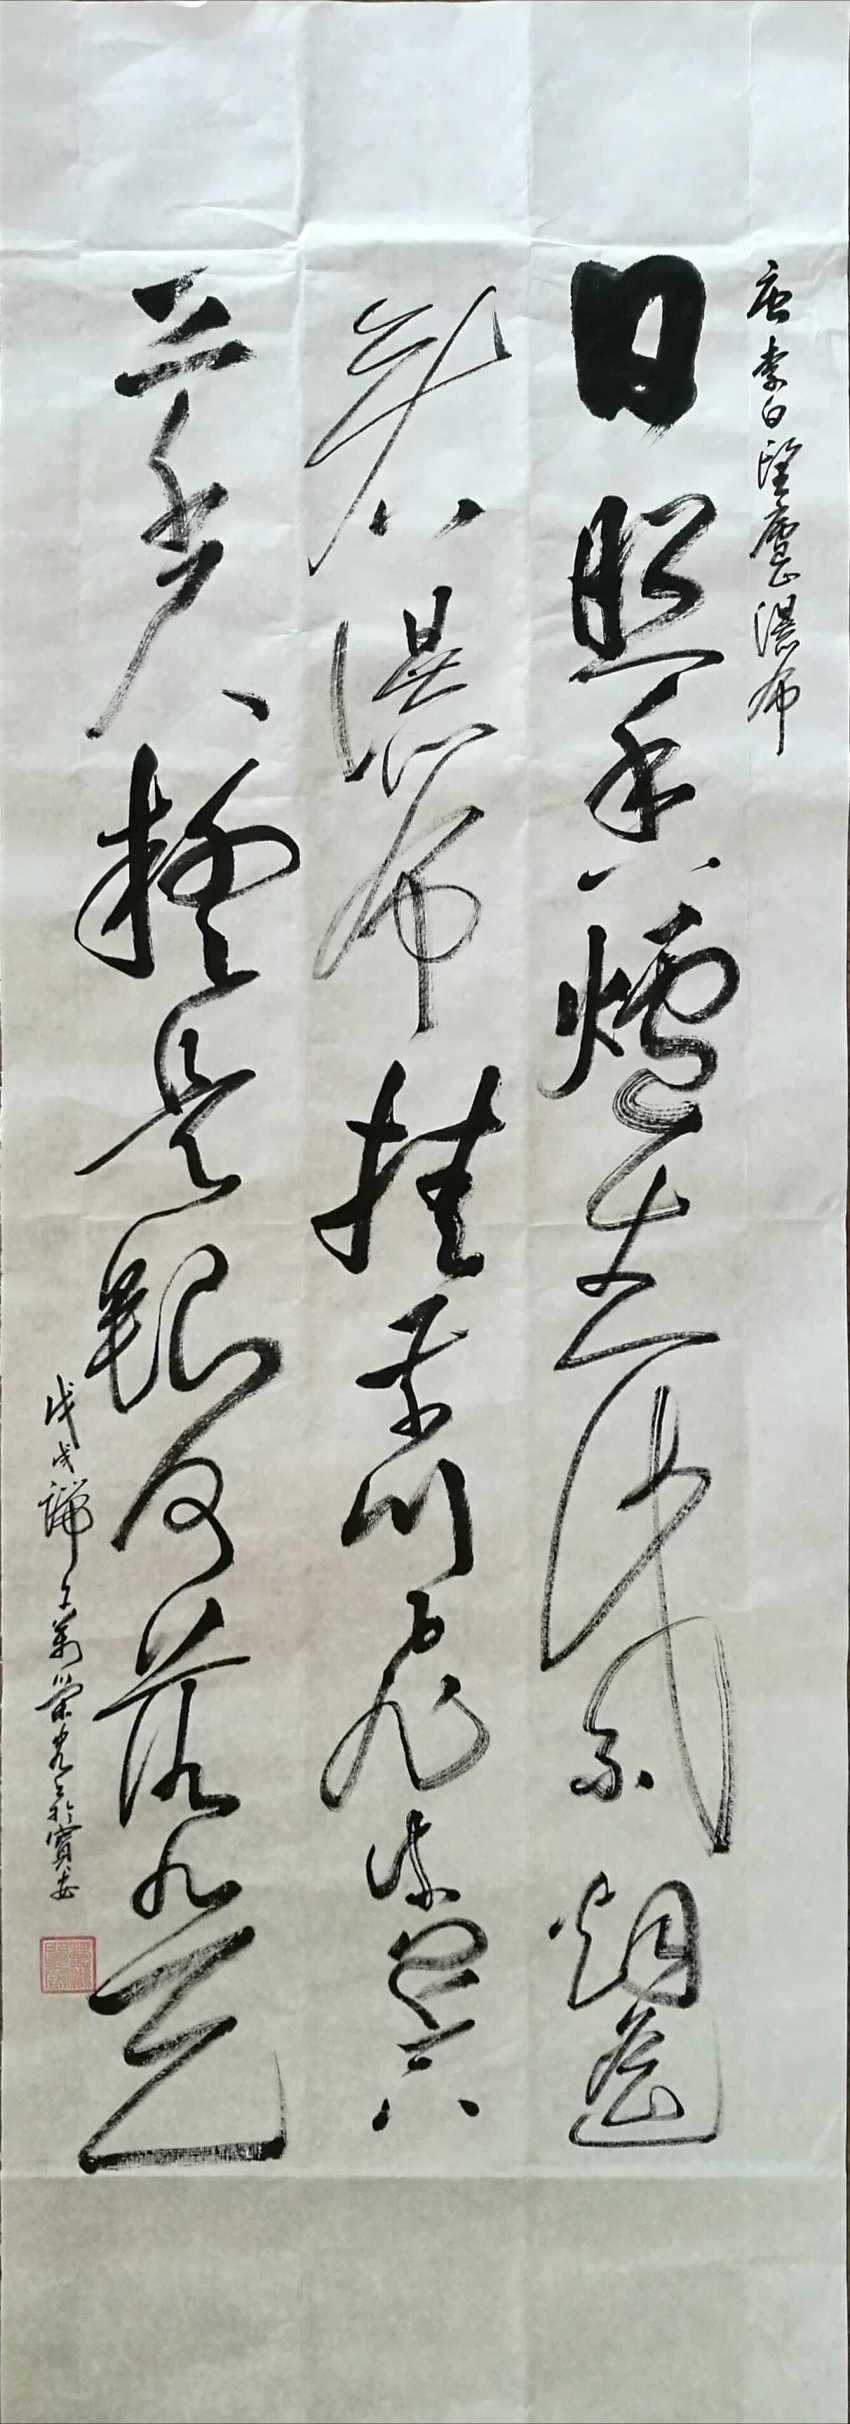 唐李白望廬山瀑布
日照香爐生紫烟遙
看瀑布挂前川飛流直下
三千尺疑是銀河落九天
戊戌端榮光於寶安